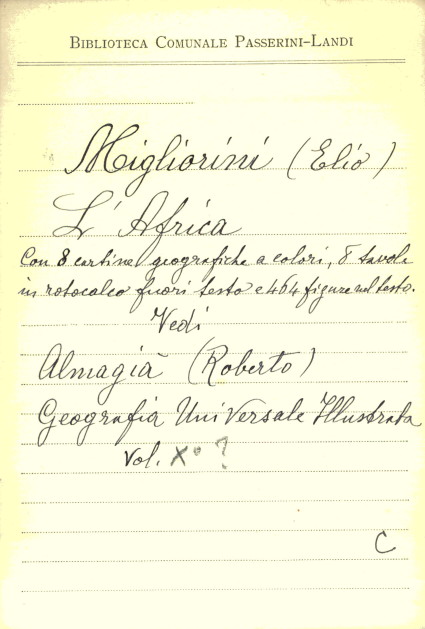 BIBLIOTECA COMUNALE PASSERINI-LANDI
Migliorini (Elio)
L' Africa
Con 8 cartine geografiche a colori, 8 tavole
in rotocalco fuori testo e 464 figure nel testo.
Vedi
Almagià (Roberto)
Geografia Universale Illustrata
Vol. X° ?
C